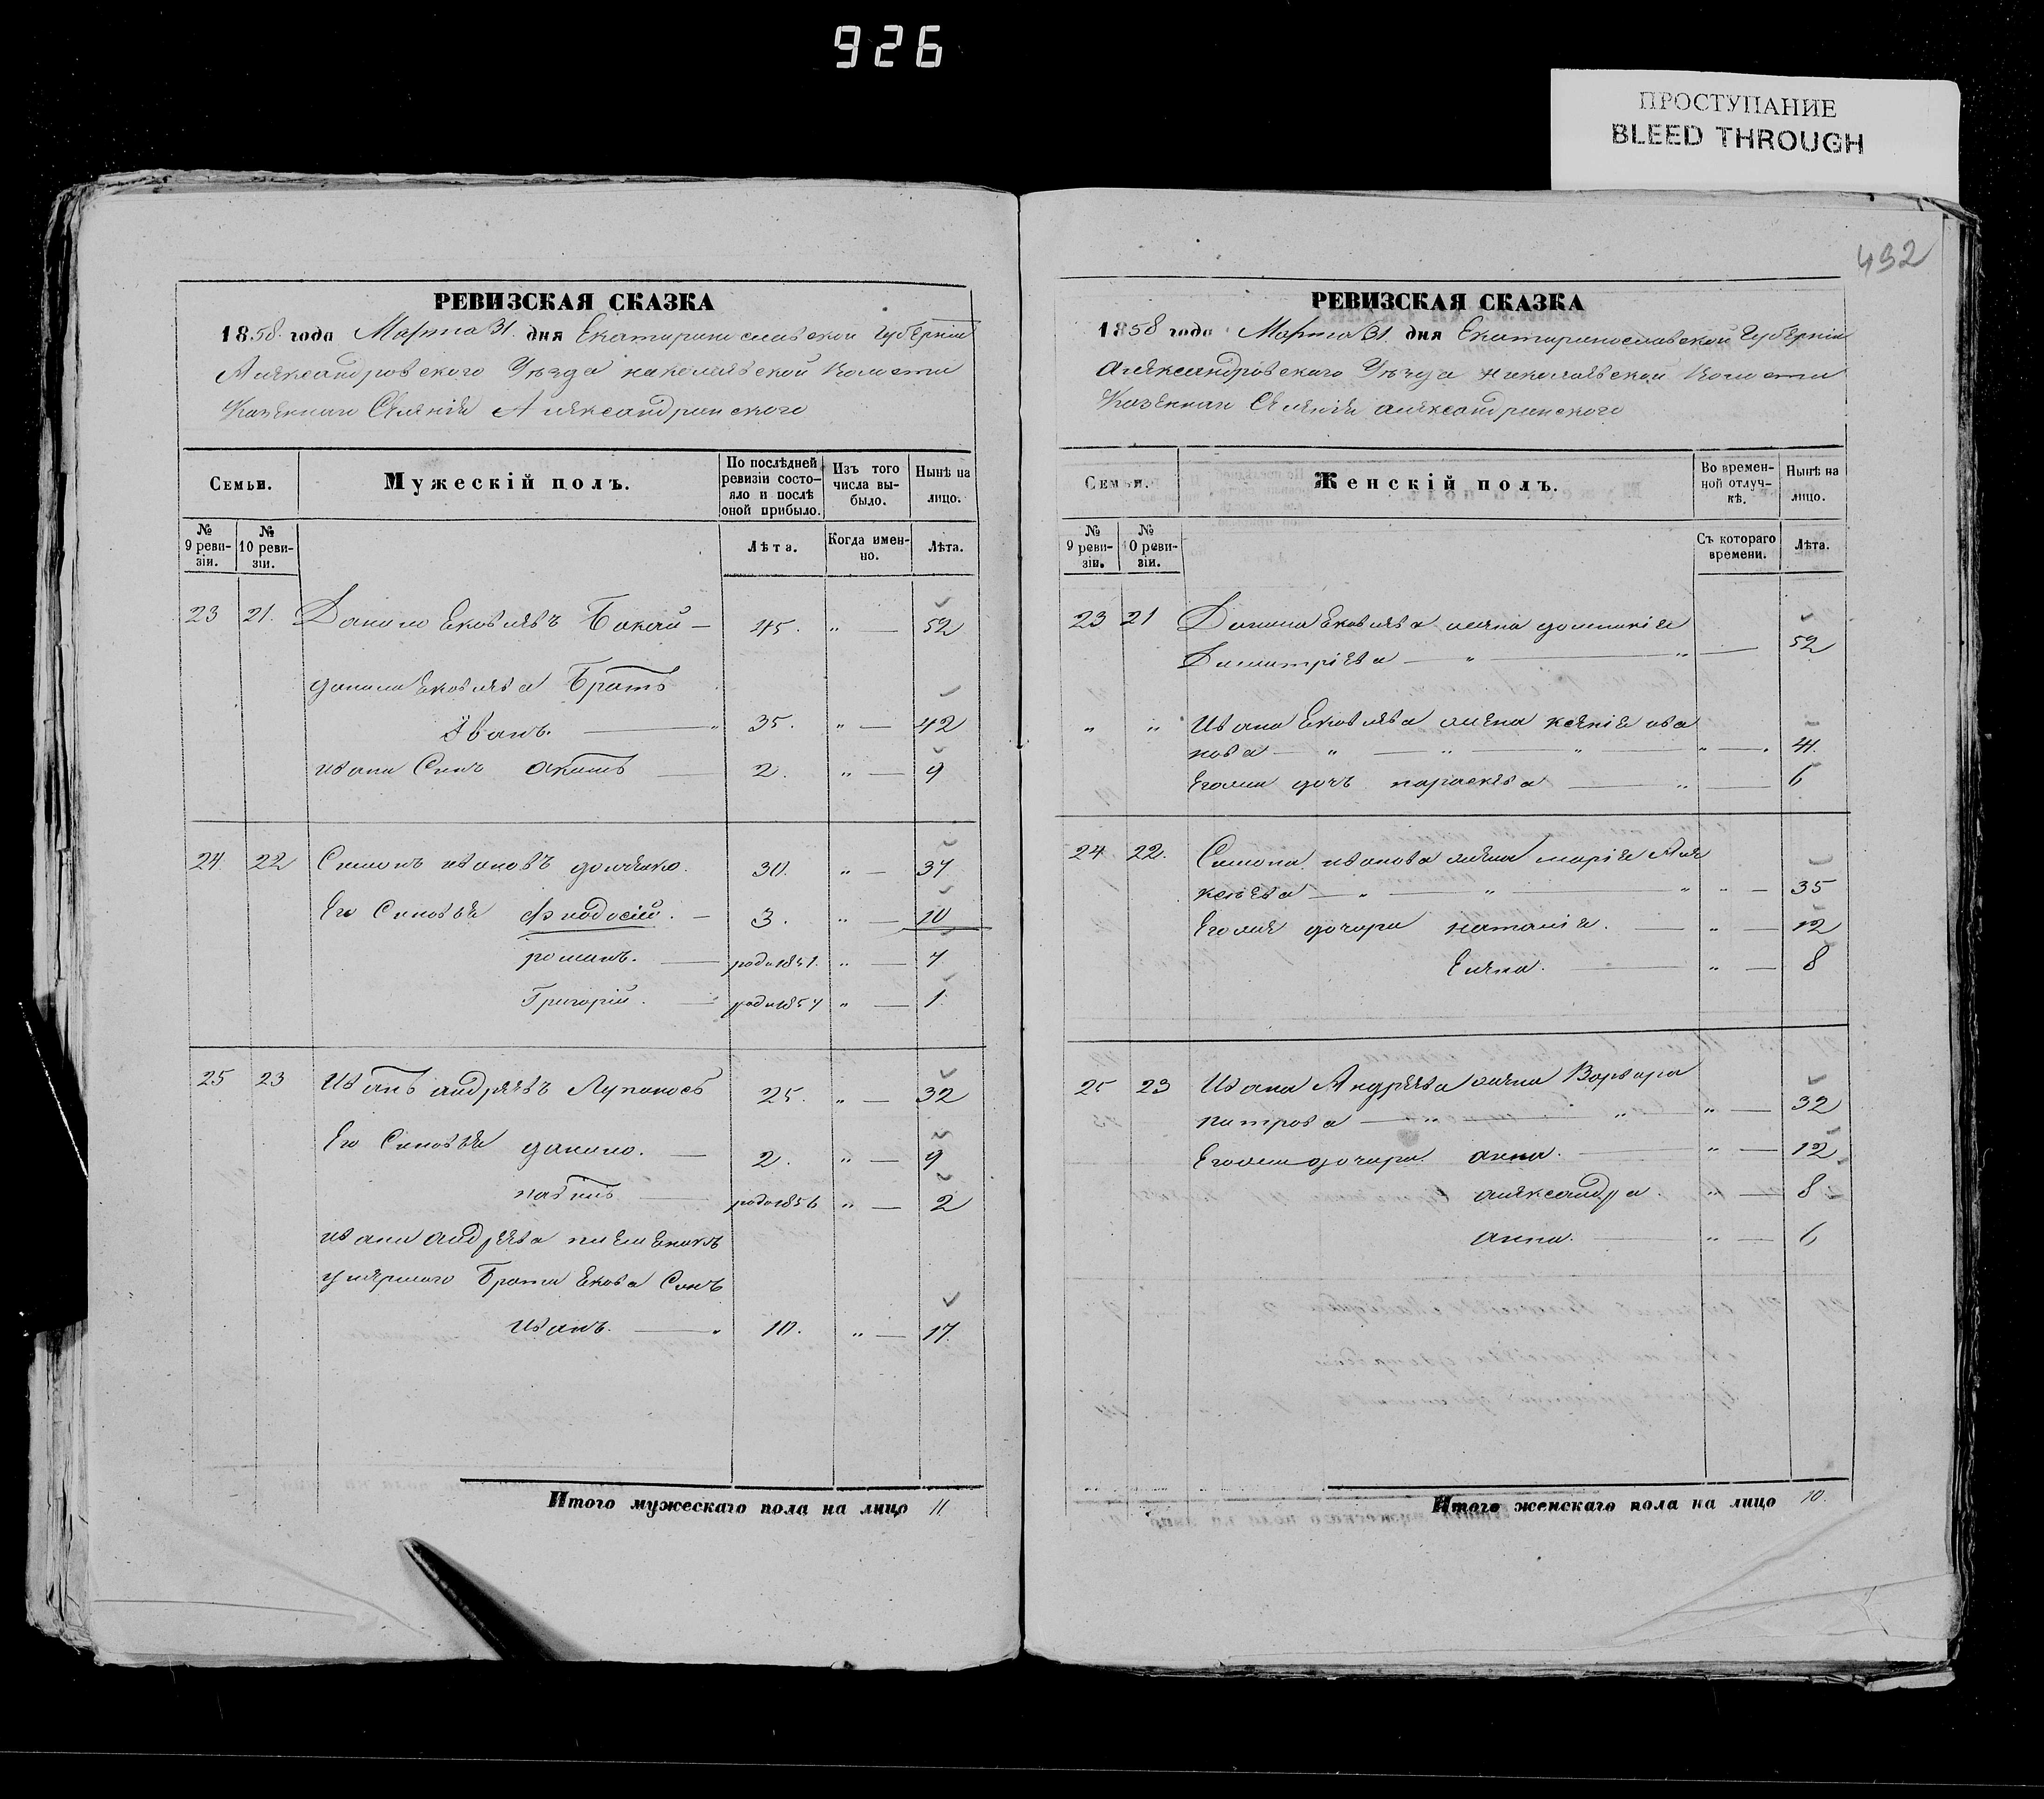 926
ПРОСТУПАНИЕ
BLEED THROUGH
492
РЕВИЗСКАЯ СКАЗКА
1858 года Марта 31. дня Екатеринославской Губерніи
Александровскаго Уезда Николаевской Волости
Казеннаи Селеніе Александранского
Семьи.
Мужескій полъ.
По послѣдней ревизіи состояло и послѣ оной прибыло.
Изъ того числа выбыло.
Нынѣ на лицо.
№ 9 ревизіи.
№ 10 ревизіи.
Лѣта.
Когда именно.
Лѣта.
23 21. Данило Ековлевъ Бакай — 45. „ — 52
данила Ековлева Братъ
Иванъ. — 35. „ — 42
ивана Синъ — 2. „ — 9
24 22 Симонъ ивановъ 30. „ — 37
Его Синовья Феодосій. — 3. „ — 10
романъ. — роди 1851. „ — 7
Григорій. — роди 1857 „ — 1
25 23 Иванъ андреевъ Лупоносъ 25. „ — 32
Его Синовья данило. — 2. „ — 9
— роди 1856 „ — 2
ивана андреева племеникъ
умершаго Брата Екова Синъ
иванъ. — 10. „ — 17
Итого мужескаго пола на лицо 11.
РЕВИЗСКАЯ СКАЗКА
1858 года Марта 31. дня Екатеринославской Губерніи
Александровскаго Уезда Николаевской Волости
Казеннаи Селеніе александранского
Семьи.
Женскій полъ.
Во временной отлучкѣ.
Нынѣ на лицо.
№ 9 ревизіи.
№ 10 ревизіи.
Съ котораго времени.
Лѣта.
23 21 Данила Ековлева жена
Димитріева — „ — „ — 52
„ „ Ивана Ековлева жена ксеніе ива
нова — „ — „ — „ — „ — 41.
Егоже дочь параскева — „ — 6
24 22. Симона иванова жена маріе Але
ксеева — „ — „ — „ „ — 35
Егоже дочери наталіе. — „ — 12
Елена. — „ — 8
25 23 Ивана Андреева жена Варвара
петрова — „ — „ „ — 32
Егоже дочери анна. — „ — 12
александра. „ — 8
анна. — „ — 6
Итого женскаго пола на лицо 10.